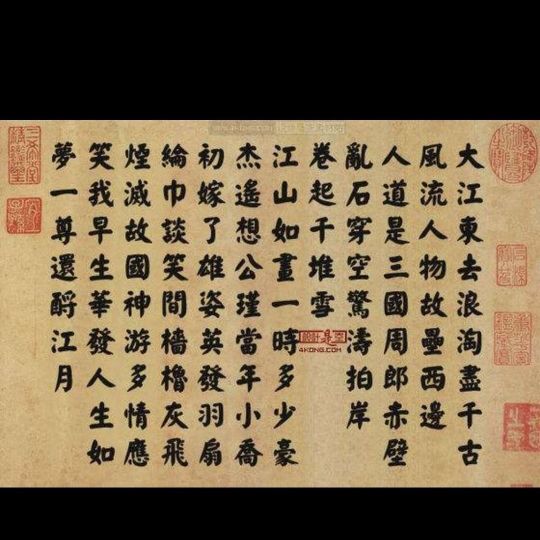 大江東去浪淘盡千古
風流人物故壘西邊
人道是三國周郎赤壁
亂石穿空驚濤拍岸
卷起千堆雪
江山如畫一時多少豪
杰遙想公瑾當年小喬
初嫁了雄姿英發羽扇
綸巾談笑間檣櫓灰飛
煙滅故國神游多情應
笑我早生華發人生如
夢一尊還酹江月
4KONG.COM